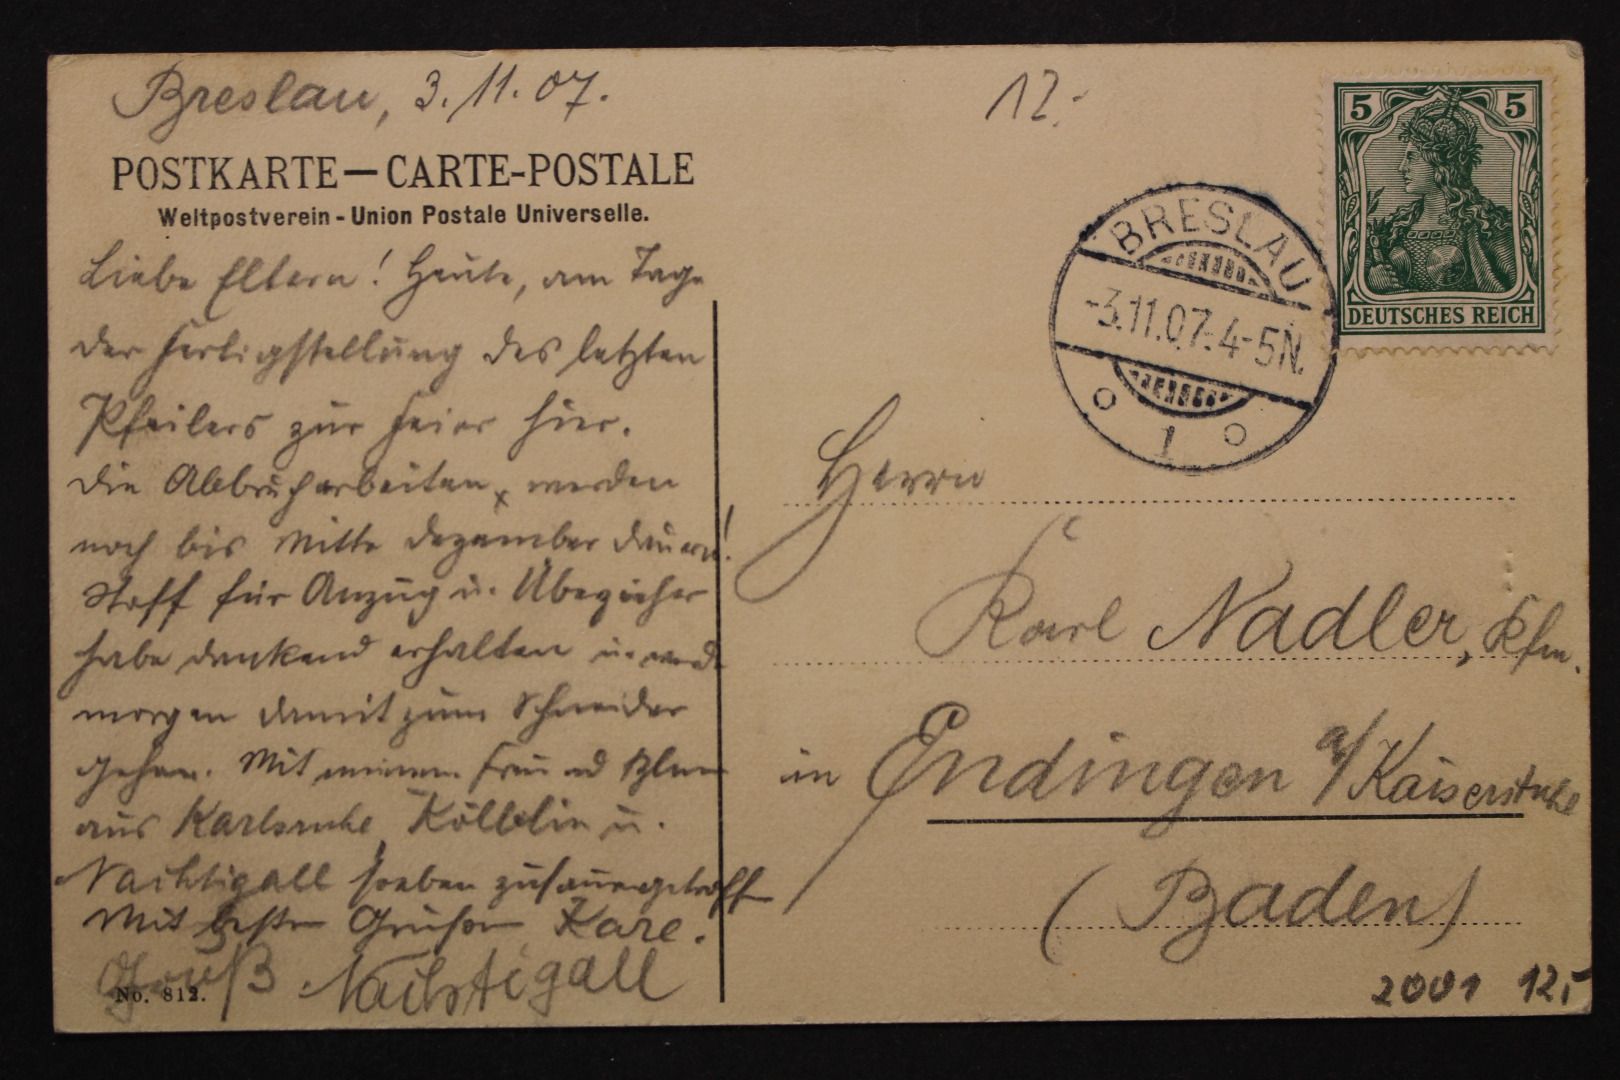 Breslau, 3.11.07.
POSTKARTE — CARTE-POSTALE
Weltpostverein - Union Postale Universelle.
Liebe Eltern! Heute, am Tage
der Fertigstellung des letzten
Pfeilers zur Feier hier.
Die Abbrucharbeiten werden
noch bis Mitte Dezember dauern!
Stoff für Anzug u. Überzieher
habe dankend erhalten u. werde
morgen damit zum Schneider
gehen. Mit meinem
aus Karlsruhe, Kölblin u.
Nachtigall soeben zusammengetroff
Mit besten Grüßen Karl.
Gruß Nachtigall
No. 812.
12.-
5 5
DEUTSCHES REICH
BRESLAU
-3.11.07.4-5N.
1
Herrn
Karl Nadler, Kfm.
in Endingen a/Kaiserstuhl
(Baden)
2001 12,-